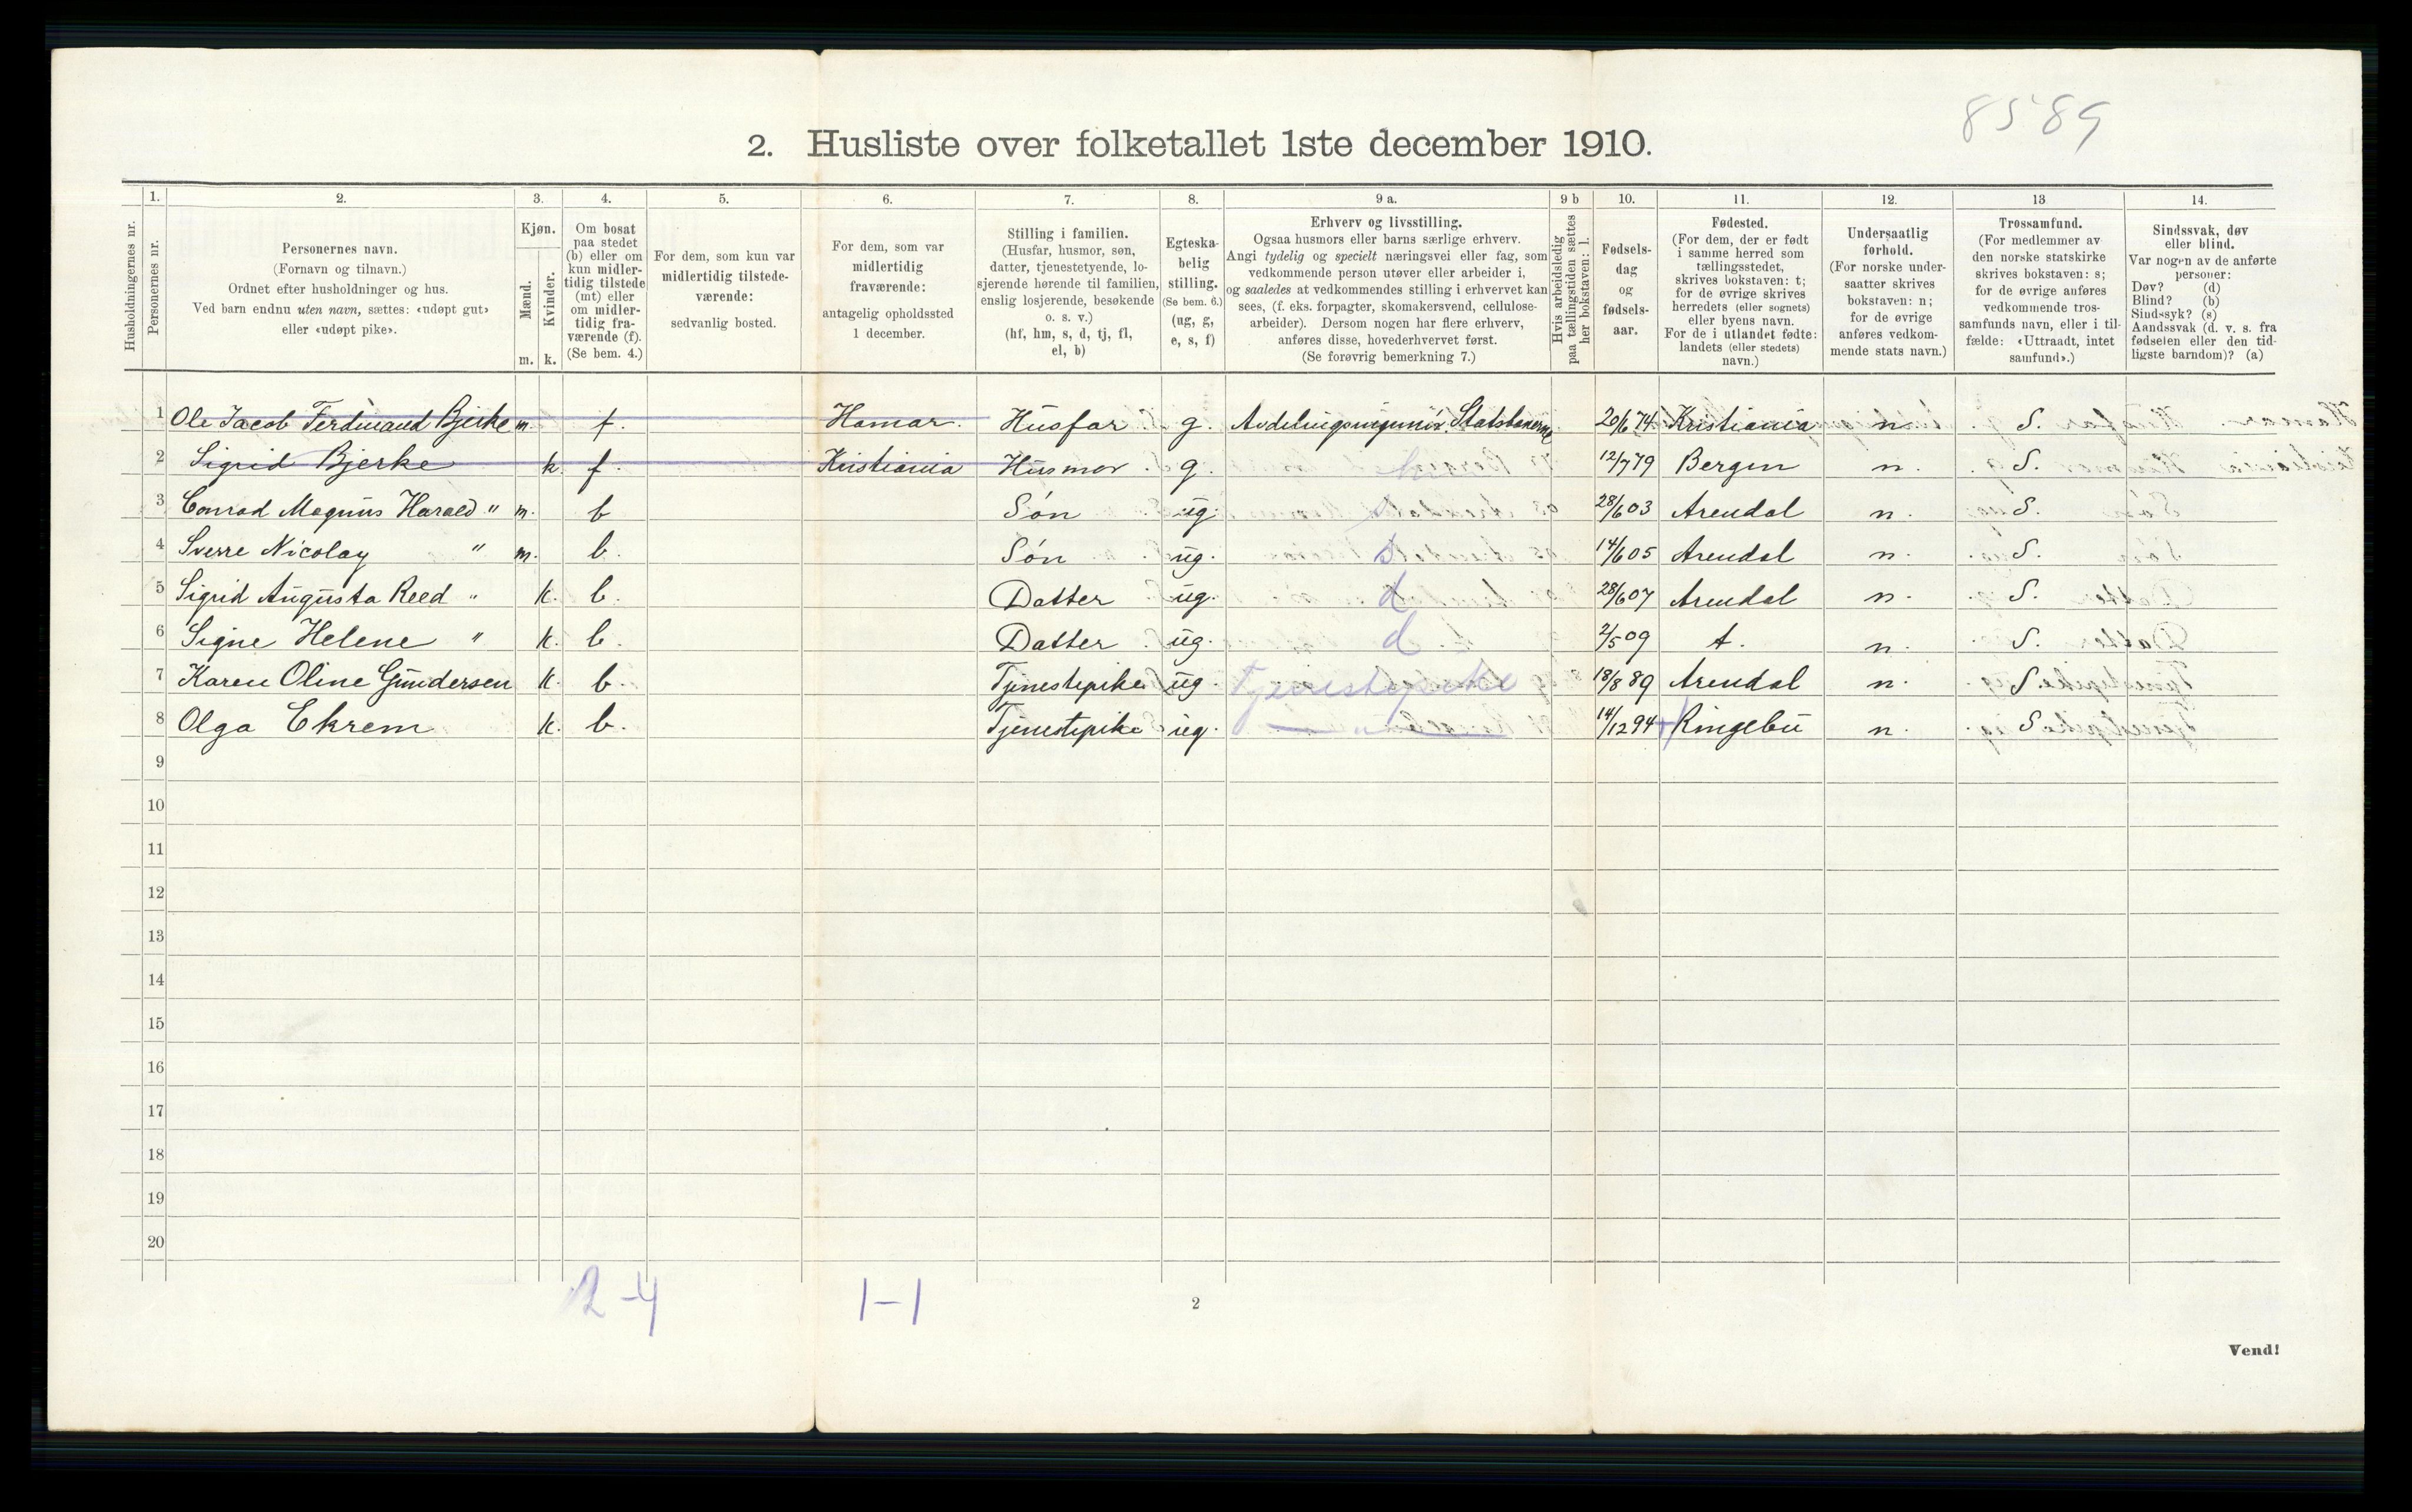 8589
2. Husliste over folketallet 1ste december 1910.
Husholdningernes nr.
1. Personernes nr.
2. Personernes navn. (Fornavn og tilnavn.) Ordnet efter husholdninger og hus. Ved barn endnu uten navn, sættes: «udøpt gut» eller «udøpt pike».
3. Kjøn. Mænd. m. Kvinder. k.
4. Om bosat paa stedet (b) eller om kun midlertidig tilstede (mt) eller om midlertidig fraværende (f). (Se bem. 4.)
5. For dem, som kun var midlertidig tilstedeværende: sedvanlig bosted.
6. For dem, som var midlertidig fraværende: antagelig opholdssted 1 december.
7. Stilling i familien. (Husfar, husmor, søn, datter, tjenestetyende, losjerende hørende til familien, enslig losjerende, besøkende o. s. v.) (hf, hm, s, d, tj, fl, el, b)
8. Egteskabelig stilling. (Se bem. 6.) (ug, g, e, s, f)
9 a. Erhverv og livsstilling. Ogsaa husmors eller barns særlige erhverv. Angi tydelig og specielt næringsvei eller fag, som vedkommende person utøver eller arbeider i, og saaledes at vedkommendes stilling i erhvervet kan sees, (f. eks. forpagter, skomakersvend, cellulosearbeider). Dersom nogen har flere erhverv, anføres disse, hovederhvervet først. (Se forøvrig bemerkning 7.)
9 b Hvis arbeidsledig paa tællingstiden sættes her bokstaven: l.
10. Fødselsdag og fødselsaar.
11. Fødested. (For dem, der er født i samme herred som tællingsstedet, skrives bokstaven: t; for de øvrige skrives herredets (eller sognets) eller byens navn. For de i utlandet fødte: landets (eller stedets) navn.)
12. Undersaatlig forhold. (For norske undersaatter skrives bokstaven: n; for de øvrige anføres vedkommende stats navn.)
13 Trossamfund. (For medlemmer av den norske statskirke skrives bokstaven: s; for de øvrige anføres vedkommende trossamfunds navn, eller i tilfælde: «Uttraadt, intet samfund».)
14. Sindssvak, døv eller blind. Var nogen av de anførte personer: Døv? (d) Blind? (b) Sindssyk? (s) Aandssvak (d. v. s. fra fødselen eller den tidligste barndom)? (a)
1 Ole Jacob Ferdinand Bjerke m. f. Hamar. Husfar g. Avdelingsingeniør. Statsbanerne 20/6 74 Kristiania n. S.
2 Sigrid Bjerke k. f. Kristiania Husmor. g. 12/7 79 Bergen n. S.
3 Conrad Magnus Harald " m. b Søn ug. s 28/6 03 Arendal n. S.
4 Sverre Nicolay " m. b. Søn ug. s 14/6 05 Arendal n. S.
5 Sigrid Augusta Reed " k. b. Datter ug. d 28/6 07 Arendal n. S.
6 Signe Helene " k. b. Datter ug. d 2/5 09 t. n. S.
7 Karen Oline Gundersen k. b. Tjenestepike ug. Tjenestepike 18/8 89 Arendal n. S.
8 Olga Ekrem k. b. Tjenestepike ug. 14/12 94 Ringebu n. S.
9
10
11
12
13
14
15
16
17
18
19
20
2-4 1-1
2
Vend!